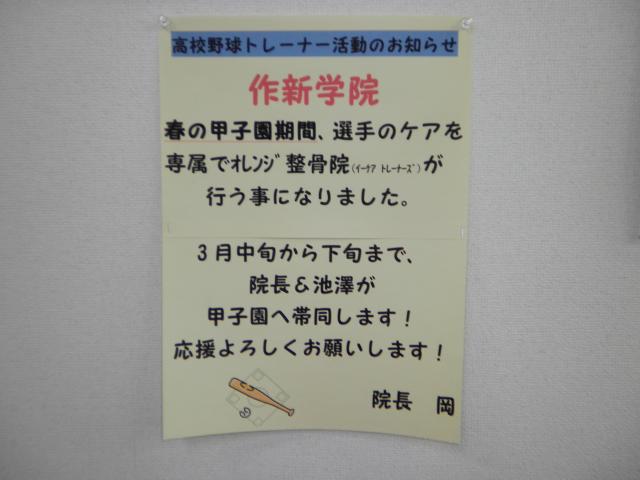 高校野球トレーナー活動のお知らせ
作新学院
春の甲子園期間、選手のケアを
専属でオレンジ整骨院(イーケア トレーナーズ)が
行う事になりました。
3月中旬から下旬まで、
院長&池澤が
甲子園へ帯同します!
応援よろしくお願いします!
院長 岡